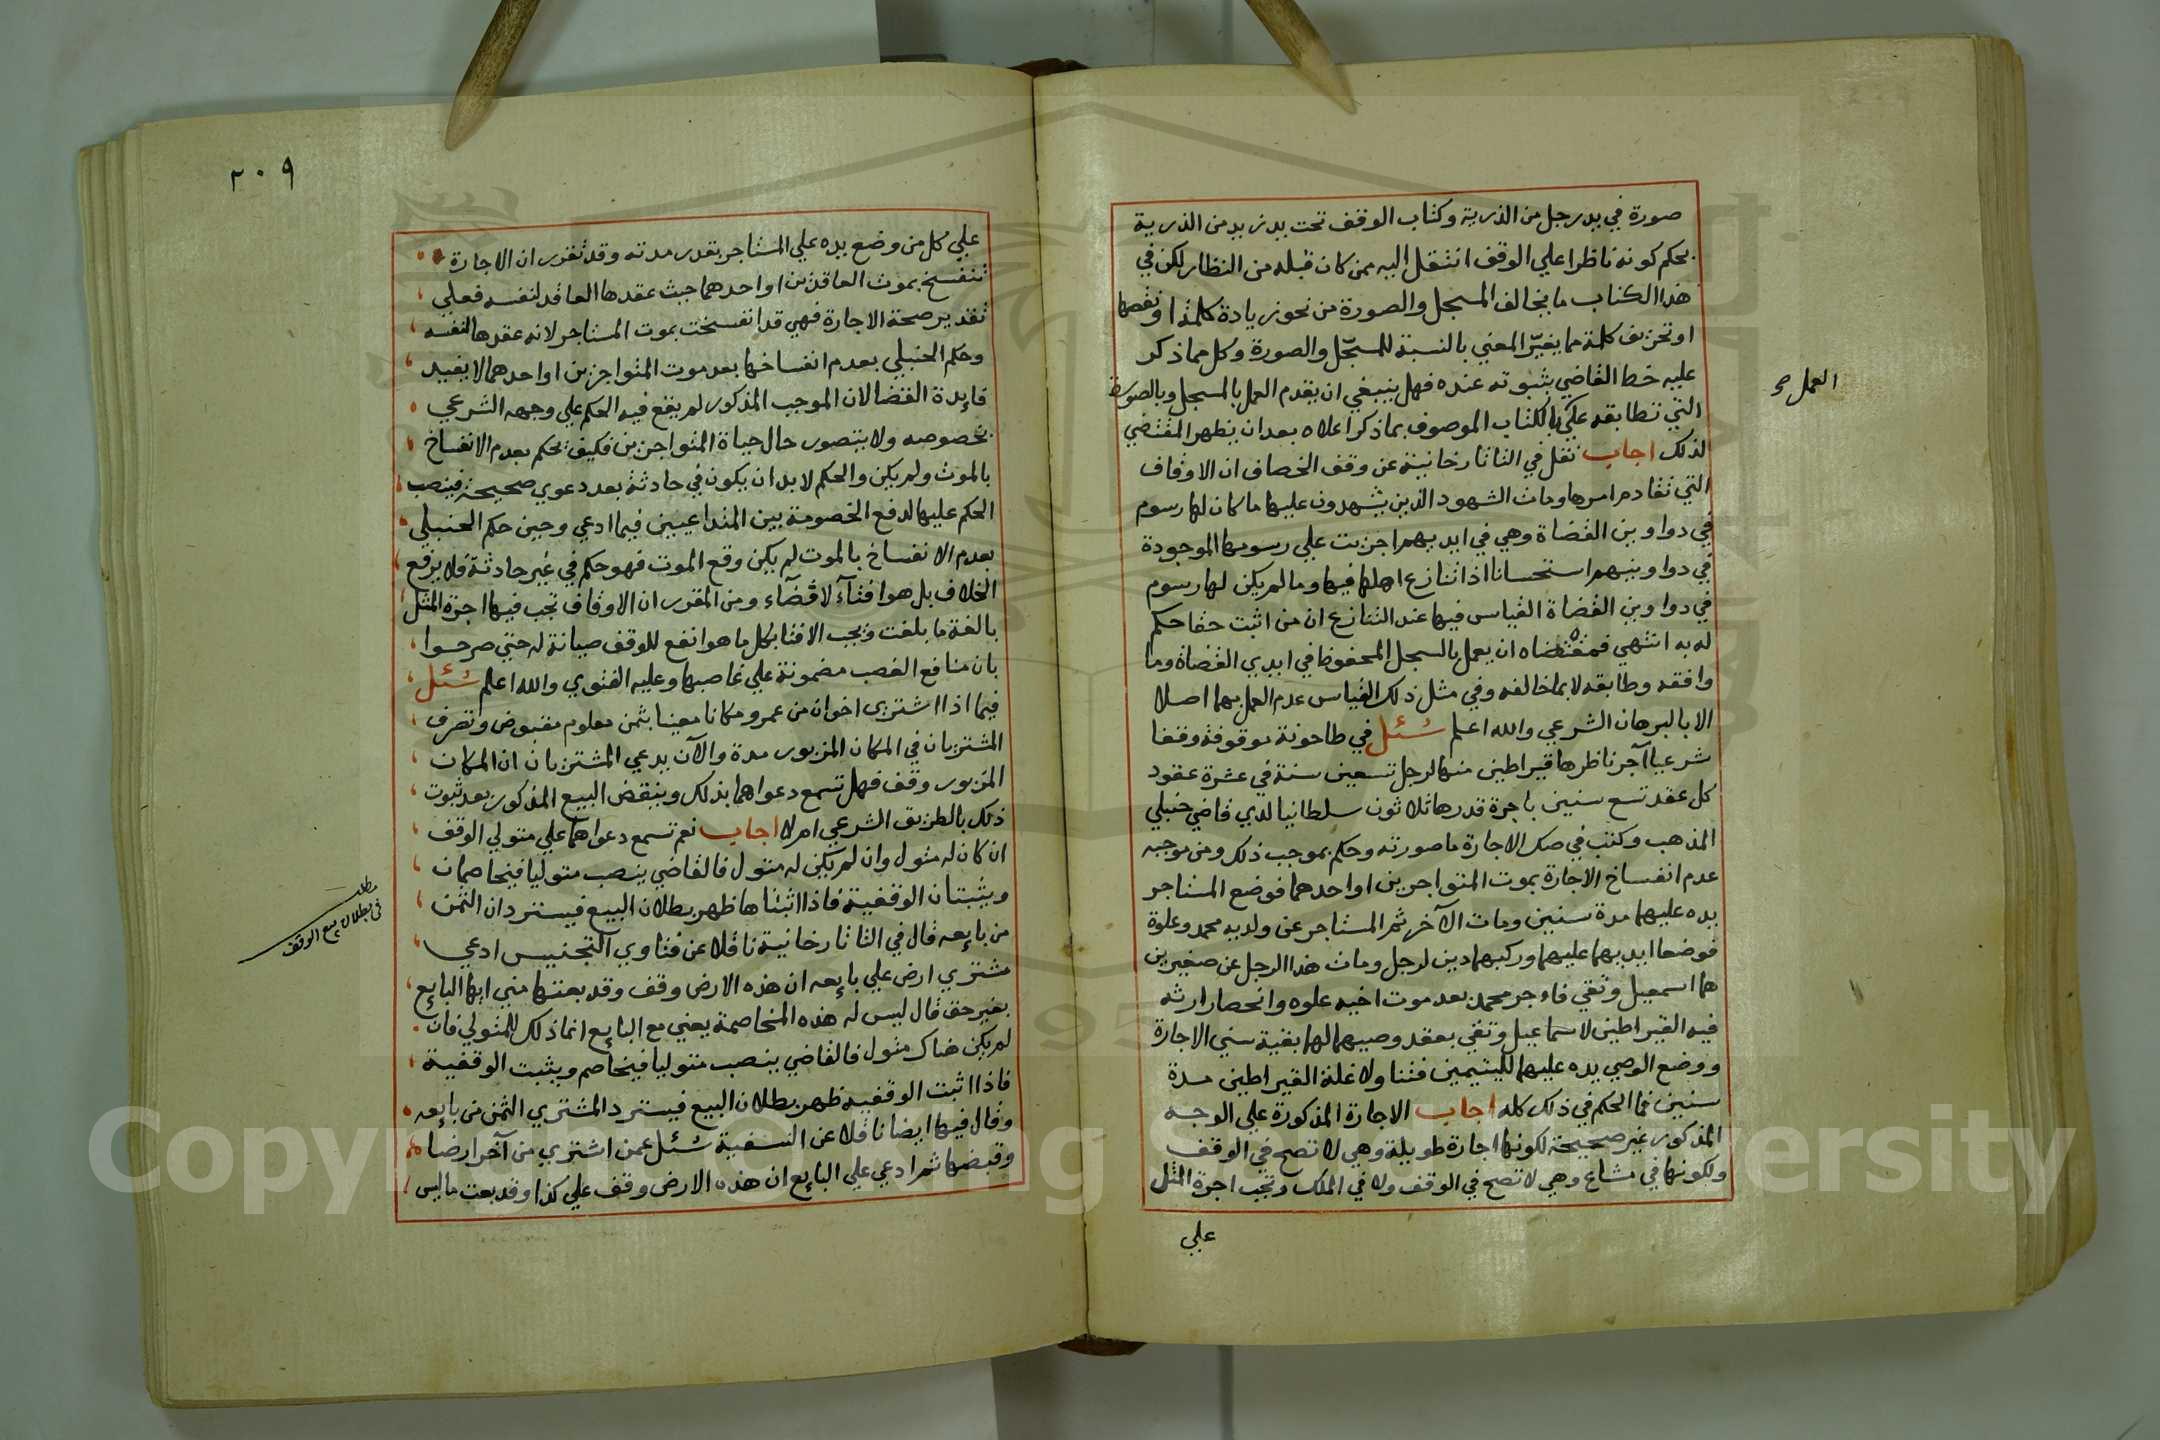 صورة في يد رجل من الذرية وكتاب الوقف تحت يد زيد من الذرية
بحكم كونه ناظرا علي الوقف انتقل اليه ممن كان قبله من النظار لكن في
هذا الكتاب ما يخالف المسجل والصورة من نحو زيادة كلمة او نقصها
او تحريف كلمة مما يغيّر المعني بالنسبة للمسجّل والصورة وكل مما ذكر
عليه خط القاضي بثبوته عنده فهل ينبغي ان يقدم العمل بالمسجل وبالصورة
التي تطابقه علي بالكتاب الموصوف بما ذكر اعلاه بعد ان يظهر المقتضي
لذلك اجاب نقل في التاتارخانية عن وقف الخصاف ان الاوقاف
التي تقادم امرها ومات الشهود الذين يشهدون عليها ما كان لها رسوم
في دواوين القضاة وهي في ايديهم اجريت علي رسومها الموجودة
في دواوينهم استحسانا اذا تنازع اهلها فيها وما لم يكن لها رسوم
في دواوين القضاة القياس فيها عند التنازع ان من اثبت حقا حكم
له به انتهي فمقتضاه ان يعمل بالسجل المحفوظ في ايدي القضاة وما
وافقه وطابقه لا بما خالفه وفي مثل ذلك القياس عدم العمل بهما اصلا
الا بالبرهان الشرعي والله اعلم سُئل في طاحونة موقوفة وقفا
شرعيا آجر ناظرها قيراطين منها لرجل تسعين سنة في عشرة عقود
كل عقد تسع سنين باجرة قدرها ثلاثون سلطانيا لدي قاضي حنبلي
المذهب وكتب في صك الاجارة ما صورته وحكم بموجب ذلك ومن موجبه
عدم انفساخ الاجارة بموت المتواجرين او احدهما فوضع المستاجر
يده عليهما مدة سنين ومات الآخر ثم المستاجر عن ولديه محمد وعلوة
فوضعا ايديهما عليهما وركبهما دين لرجل ومات هذا الرجل عن صغيرين
هما اسمعيل وتقي فاجر محمد بعد موت اخيه علوه وانحصار ارثه
فيه القيراطين لاسماعيل وتقي بعقد وصيهما لهما بقية سني الاجارة
ووضع الوصي يده عليهما لليتيمين فتناولا غلة القيراطين مدة
سنين فما الحكم في ذلك كله اجاب الاجارة المذكورة علي الوجه
المذكور غير صحيحة لكونها اجارة طويلة وهي لا تصح في الوقف
ولكونها في مشاع وهي لا تصح في الوقف ولا في الملك وتجب اجرة المثل
علي
العمل صح
٢٠٩
علي كل من وضع يده علي المستاجر بقدر مدته وقد تقرر ان الاجارة
تنفسخ بموت العاقدين او احدهما حيث عقدها العاقد لنفسه فعلي
تقدير صحة الاجارة فهي قد انفسخت بموت المستاجر لانه عقدها لنفسه
وحكم الحنبلي بعدم انفساخها بعد موت المتواجرين او احدهما لا يفيد
فايدة القضا لان الموجب المذكور لم يقع فيه الحكم علي وجهه الشرعي
بخصوصه ولا يتصور حال حياة المتواجرين فكيف يحكم بعدم الانفساخ
بالموت ولم يكن والحكم لا بد ان يكون في حادثة بعد دعوي صحيحة فينصب
الحكم عليها لدفع الخصومة بين المتداعيين فيما ادعي وحين حكم الحنبلي
بعدم الانفساخ بالموت لم يكن وقع الموت فهو حكم في غير حادثة فلا يرفع
الخلاف بل هو افتآء لا قضآء ومن المقرر ان الاوقاف تجب فيها اجرة المثل
بالغة ما بلغت ويجب الافتا بكل ما هو انفع للوقف صيانة له حتي صرحوا
بان منافع الغصب مضمونة علي غاصبها وعليه الفتوي والله اعلم سُئل
فيما اذا اشتري اخوان من عمرو مكانا معينا بثمن معلوم مقبوض وتصرف
المشتريان في المكان المزبور مدة والآن يدعي المشتريان ان المكان
المزبور وقف فهل تسمع دعواهما بذلك وينقض البيع المذكور بعد ثبوت
ذلك بالطريق الشرعي ام لا اجاب نعم تسمع دعواهما علي متولي الوقف
ان كان له متول وان لم يكن له متول فالقاضي ينصب متوليا فيخاصمان
ويثبتان الوقفية فاذا اثبتاها ظهر بطلان البيع فيستردان الثمن
من بايعه قال في التاتارخانية ناقلا عن فتاوي التجنيس ادعي
مشتري ارض علي بايعه ان هذه الارض وقف وقد بعتها مني ايها البايع
بغير حق قال ليس له هذه المخاصمة يعني مع البايع انما ذلك للمتولي فان
لم يكن هناك متول فالقاضي ينصب متوليا فيخاصم ويثبت الوقفية
فاذا اثبت الوقفية ظهر بطلان البيع فيسترد المشتري الثمن من بايعه
وقال فيها ايضا ناقلا عن النسفية سُئل عمن اشتري من آخر ارضا
وقبضها ثم ادعي علي البايع ان هذه الارض وقف علي كذا وقد بعت ما ليس
مطلب
في بطلان بيع الوقف
Copyright © King Saud University